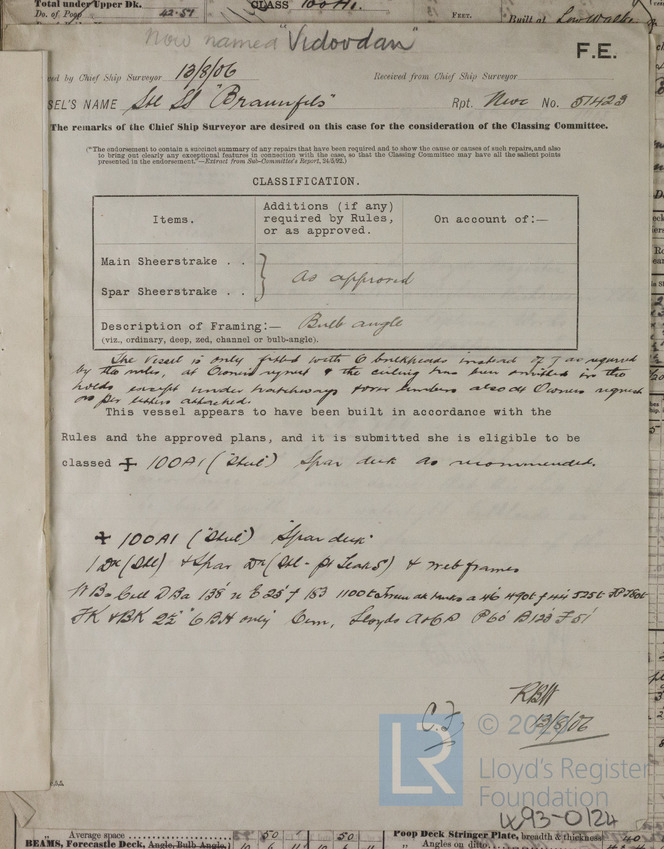 Total under Upper Dk.
Do. of Poop 42.51
CLASS 100A1.
FEET.
Built at Low Walker
Now named "Vidovdan"
F.E.
ved by Chief Ship Surveyor 13/8/06 Received from Chief Ship Surveyor
SEL'S NAME Stl SS "Braunfels" Rpt. Nwc No. 51423
The remarks of the Chief Ship Surveyor are desired on this case for the consideration of the Classing Committee.
(*The endorsement to contain a succinct summary of any repairs that have been required and to show the cause or causes of such repairs, and also
to bring out clearly any exceptional features in connection with the case, so that the Classing Committee may have all the salient points
presented in the endorsement."—Extract from Sub-Committee's Report, 24/5/92.)
CLASSIFICATION.
Items. Additions (if any) required by Rules, or as approved. On account of:—
Main Sheerstrake . .
Spar Sheerstrake . . As approved
Description of Framing:— Bulb angle
(viz., ordinary, deep, zed, channel or bulb-angle).
The Vessel is only fitted with 6 bulkheads instead of 7 as required
by the rules, at Owners request & the ceiling has been omitted in the
holds except under hatchways & over limbers also at Owners request
as per letters attached.
This vessel appears to have been built in accordance with the
Rules and the approved plans, and it is submitted she is eligible to be
classed ✠ 100A1 ("Steel") Spar deck as recommended.
✠ 100A1 ("Steel") "Spar deck"
1 Dk (Stl) & Spar Dk (Stl - ) & web frames
FK & BK 2½" 6 BH only Cem, Lloyds A & CP P60' B123' F51'
RBH
C.F.
13/8/06
©
Lloyd's Register
Foundation
LR
W93-0124
Average space 50 50
BEAMS, Forecastle Deck, Angle, Bulb Angle,
Poop Deck Stringer Plate, breadth & thickness 40
Angles on ditto